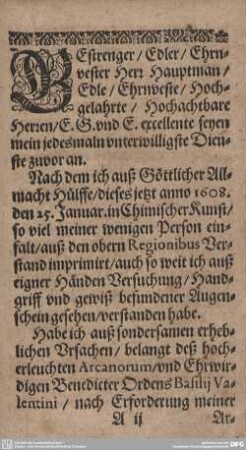 GEstrenger / Edler / Ehrn-
vester Herr Hauptman /
Edle / Ehrnveste / Hoch-
gelahrte / Hochachtbare
Herren / E. G. vnd E. excellente seyen
mein jedesmaln vnterwilligste Dien-
ste zuvor an.
Nach dem ich auß Göttlicher All-
macht Hülffe / dieses jetzt anno 1608.
den 25. Januar. in Chimischer Kunst /
so viel meiner wenigen Person ein-
falt / auß den obern Regionibus Ver-
stand imprimirt / auch so weit ich auß
eigner Händen Versuchung / Hand-
griff vnd gewiß befundener Augen-
schein gesehen / verstanden habe.
Habe ich auß sondersamen erheb-
lichen Vrsachen / belangt deß hoch-
erleuchten Arcanorum / vnd Ehrwir-
digen Benedicter Ordens Basilij Va-
lentini / nach Erforderung meiner
A ij Ar-